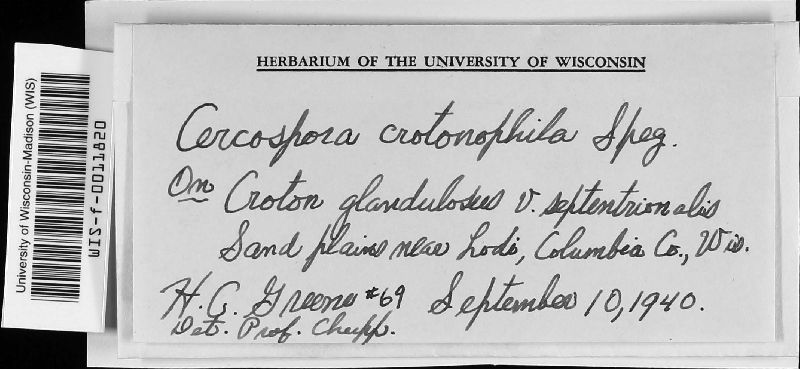 HERBARIUM OF THE UNIVERSITY OF WISCONSIN
Cercospora crotonophila Speg.
On Croton glandulosus v. septentrionalis
Sand plains near Lodi, Columbia Co., Wis.
H. C. Greene #69 September 10, 1940.
Det. Prof. Chupp.
University of Wisconsin-Madison (WIS)
WIS-f-0011820